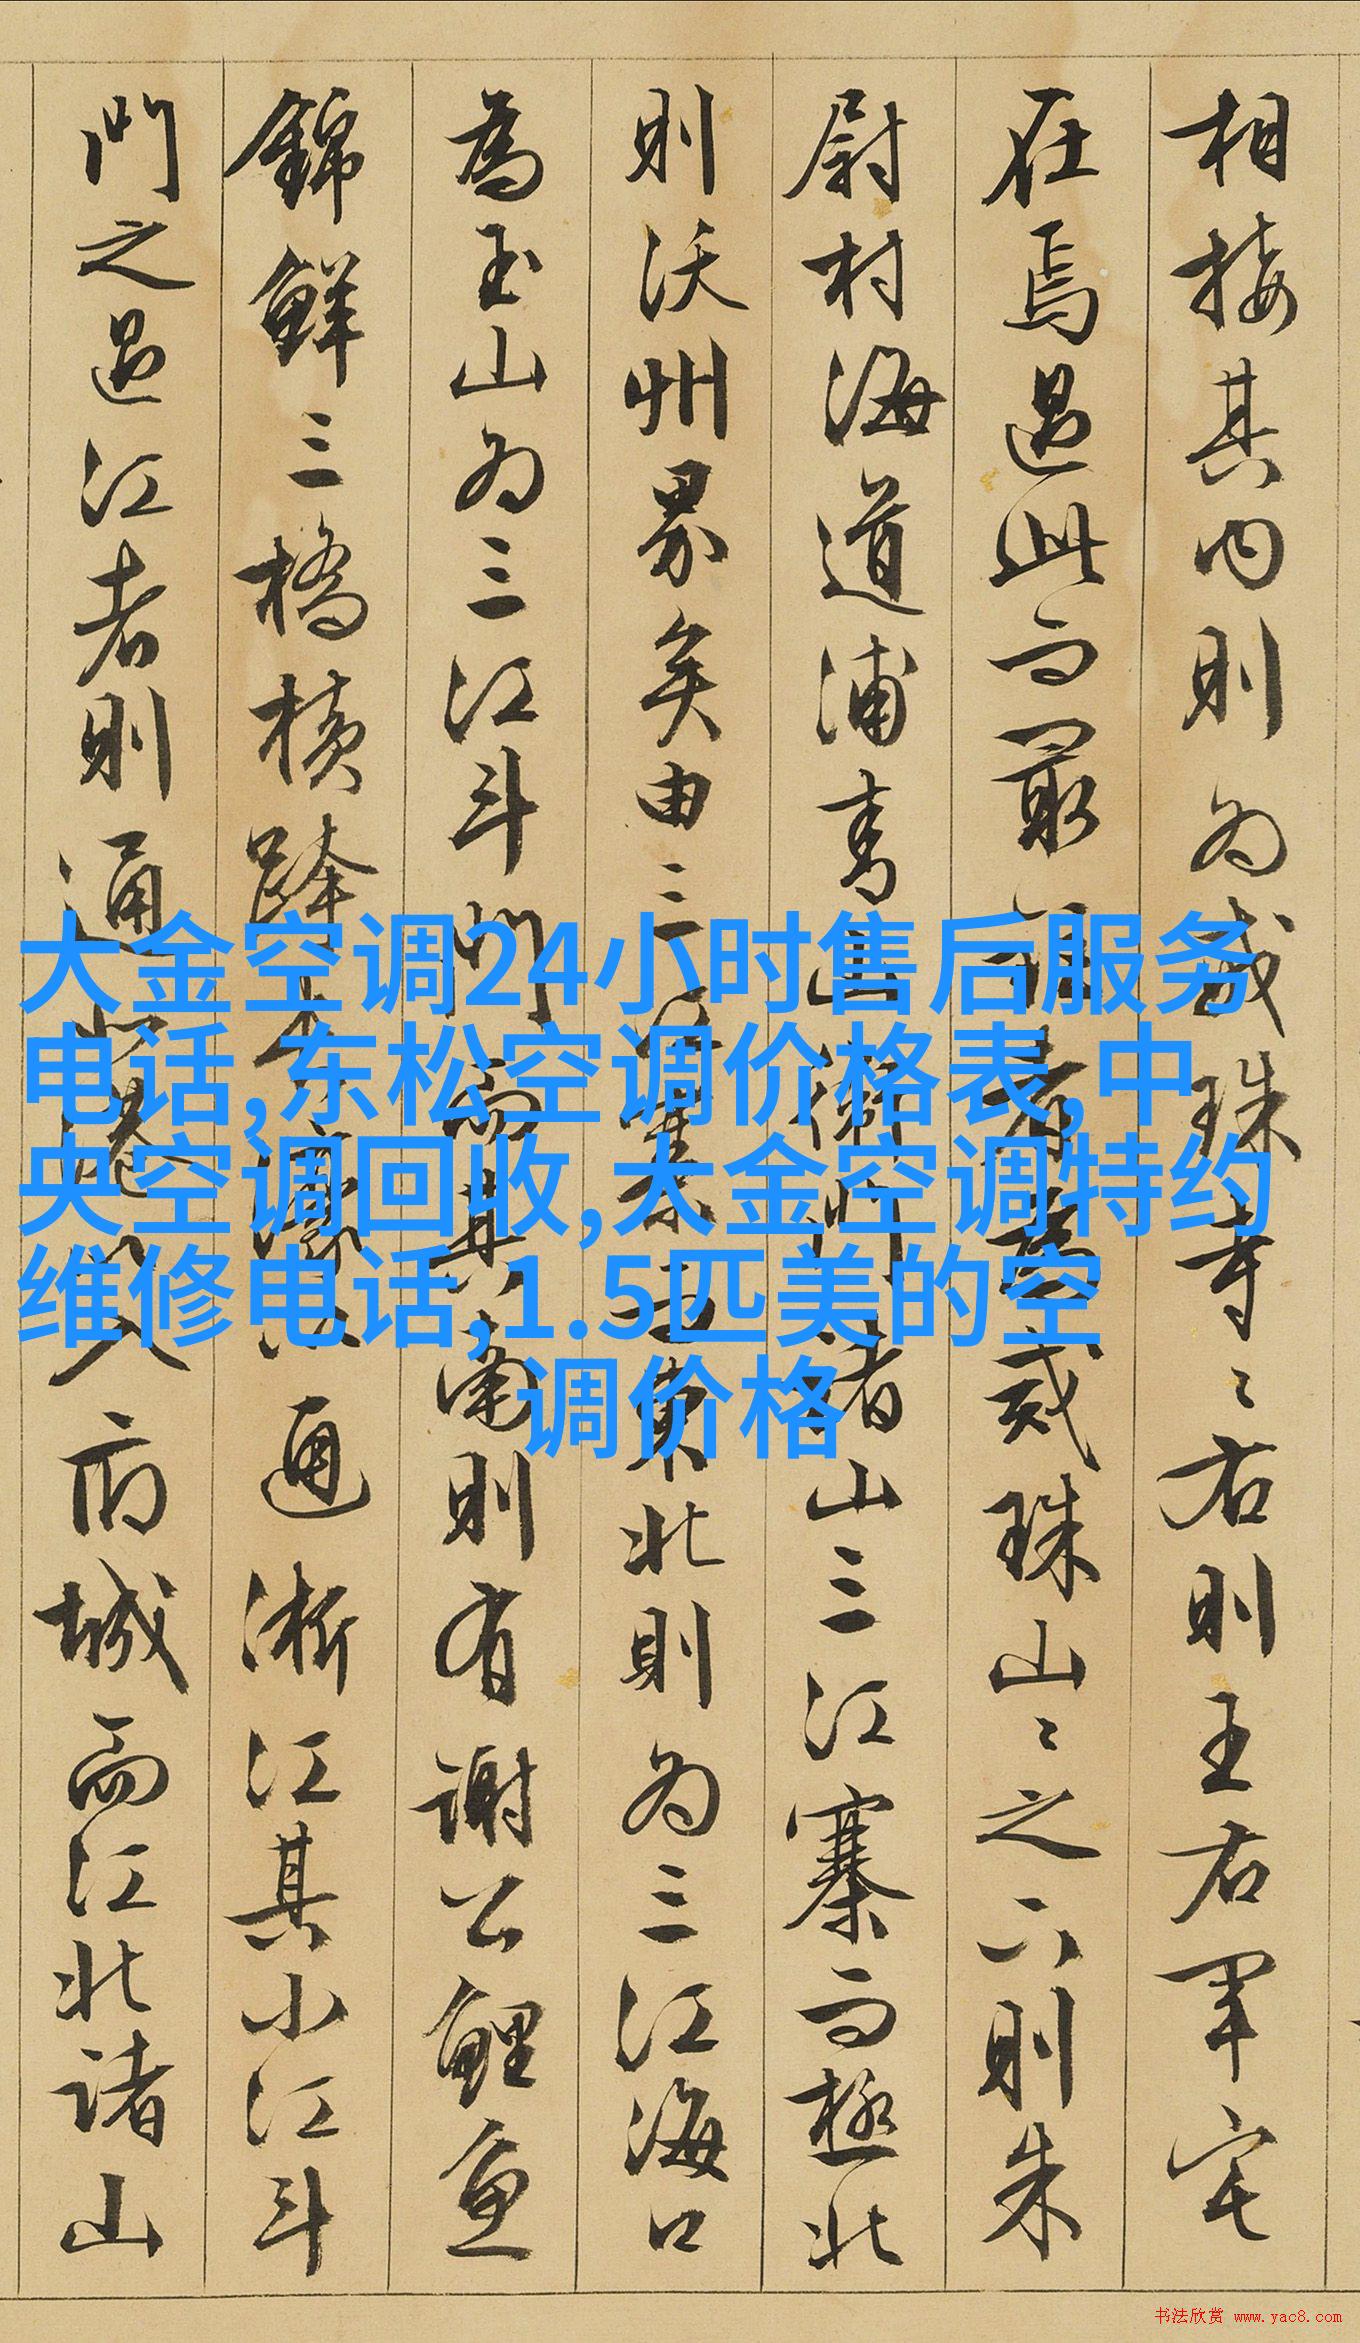 相接其内則為戒珠寺〻右則王右軍宅
在焉過此而最
戒珠山〻之下則朱
尉村海道浦
山三江寨而極北
則沃州界矣由三江
東北則為三江海口
為玉山為三江斗門而其南則有謝公鯉魚
錦鮮三橋横跨
通浙江其小江斗
門之過江者則通
入府城而江北諸山
大金空调24小时售后服务
电话,东松空调价格表,中
央空调回收,大金空调特约
维修电话,1.5匹美的空
调价格
书法欣赏 www.yac8.com